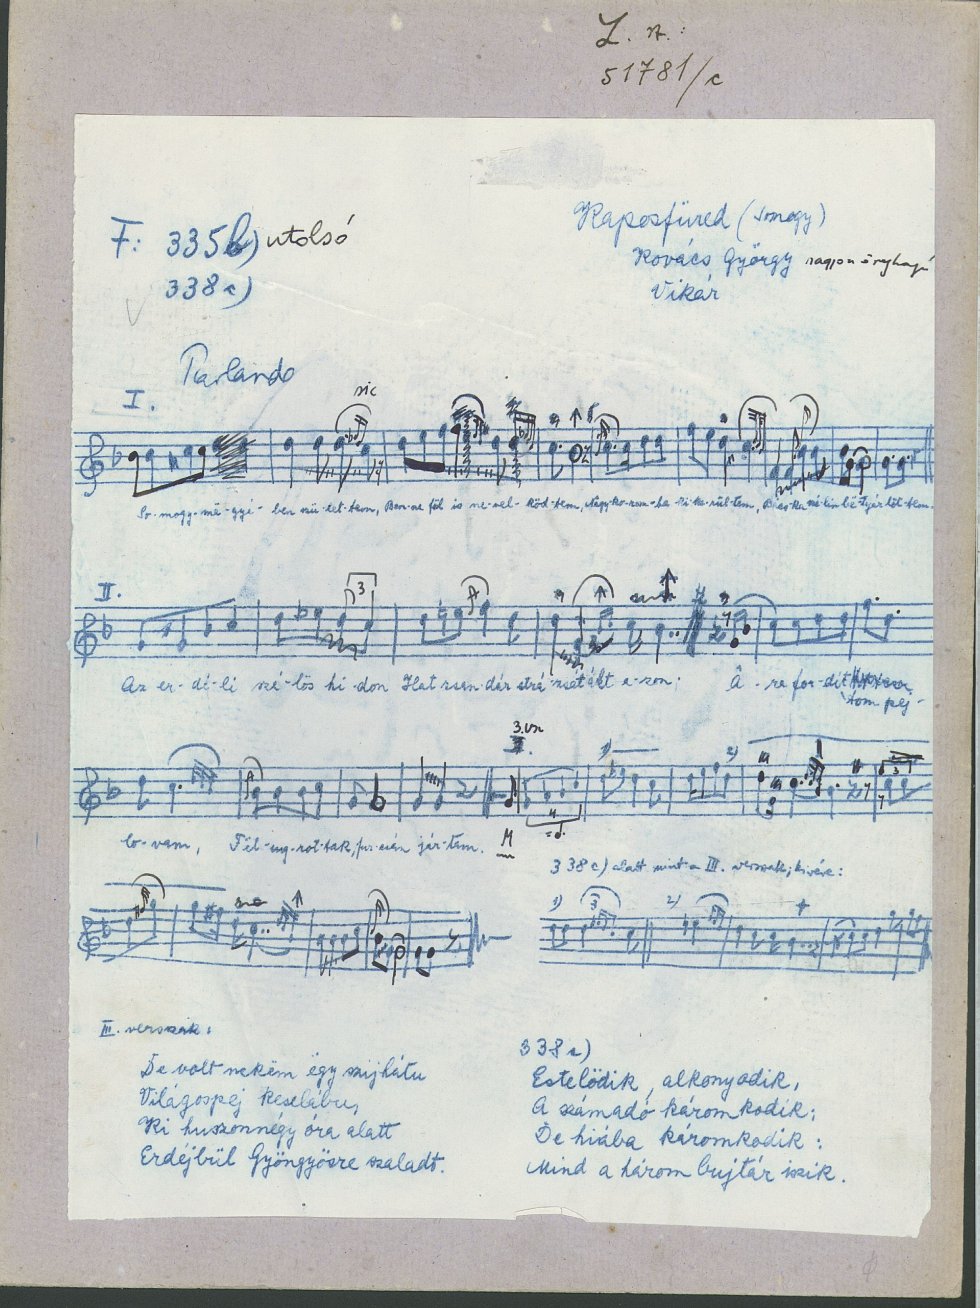 L. sz.:
51781/c
F: 335b) utolsó
338c)
Kaposfüred (Somogy)
Kovács György
Vikár
Parlando
I.
sic
So-mogy-më-gyé-ben nüt-tem, Ben-ne föl is ne-vel-köd-tem,
II.
3
Az er-dé-li szé-lös hi-don Hat zsan-dár strá-zsál e-zon; Â-re for-dít-tom pej-
lo-vam, Fél-ug-rot-tak, jár-tam.
3.vsz
1)
2)
M
338c) alatt mint a III. versszak, kivéve:
1)
3
2)
III. versszak:
De volt nekëm ëgy szijhátu
Világospej keselábu,
Ki huszonnégy óra alatt
Erdéjbül Gyöngyösre szaladt.
338c)
Estelödik, alkonyodik,
A számadó káromkodik;
De hiába káromkodik:
Mind a három bujtár iszik.